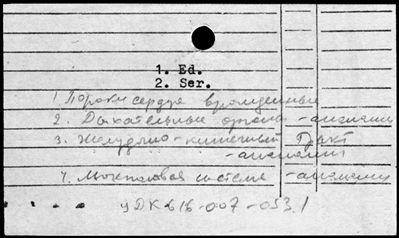 1. Ed.
2. Ser.
1. Пороки сердца врожденные
2. Дыхательные органы - аномалии
3. Желудочно-кишечный тракт
- аномалии
4. Мочеполовая система - аномалии
УДК 616-007-053.1